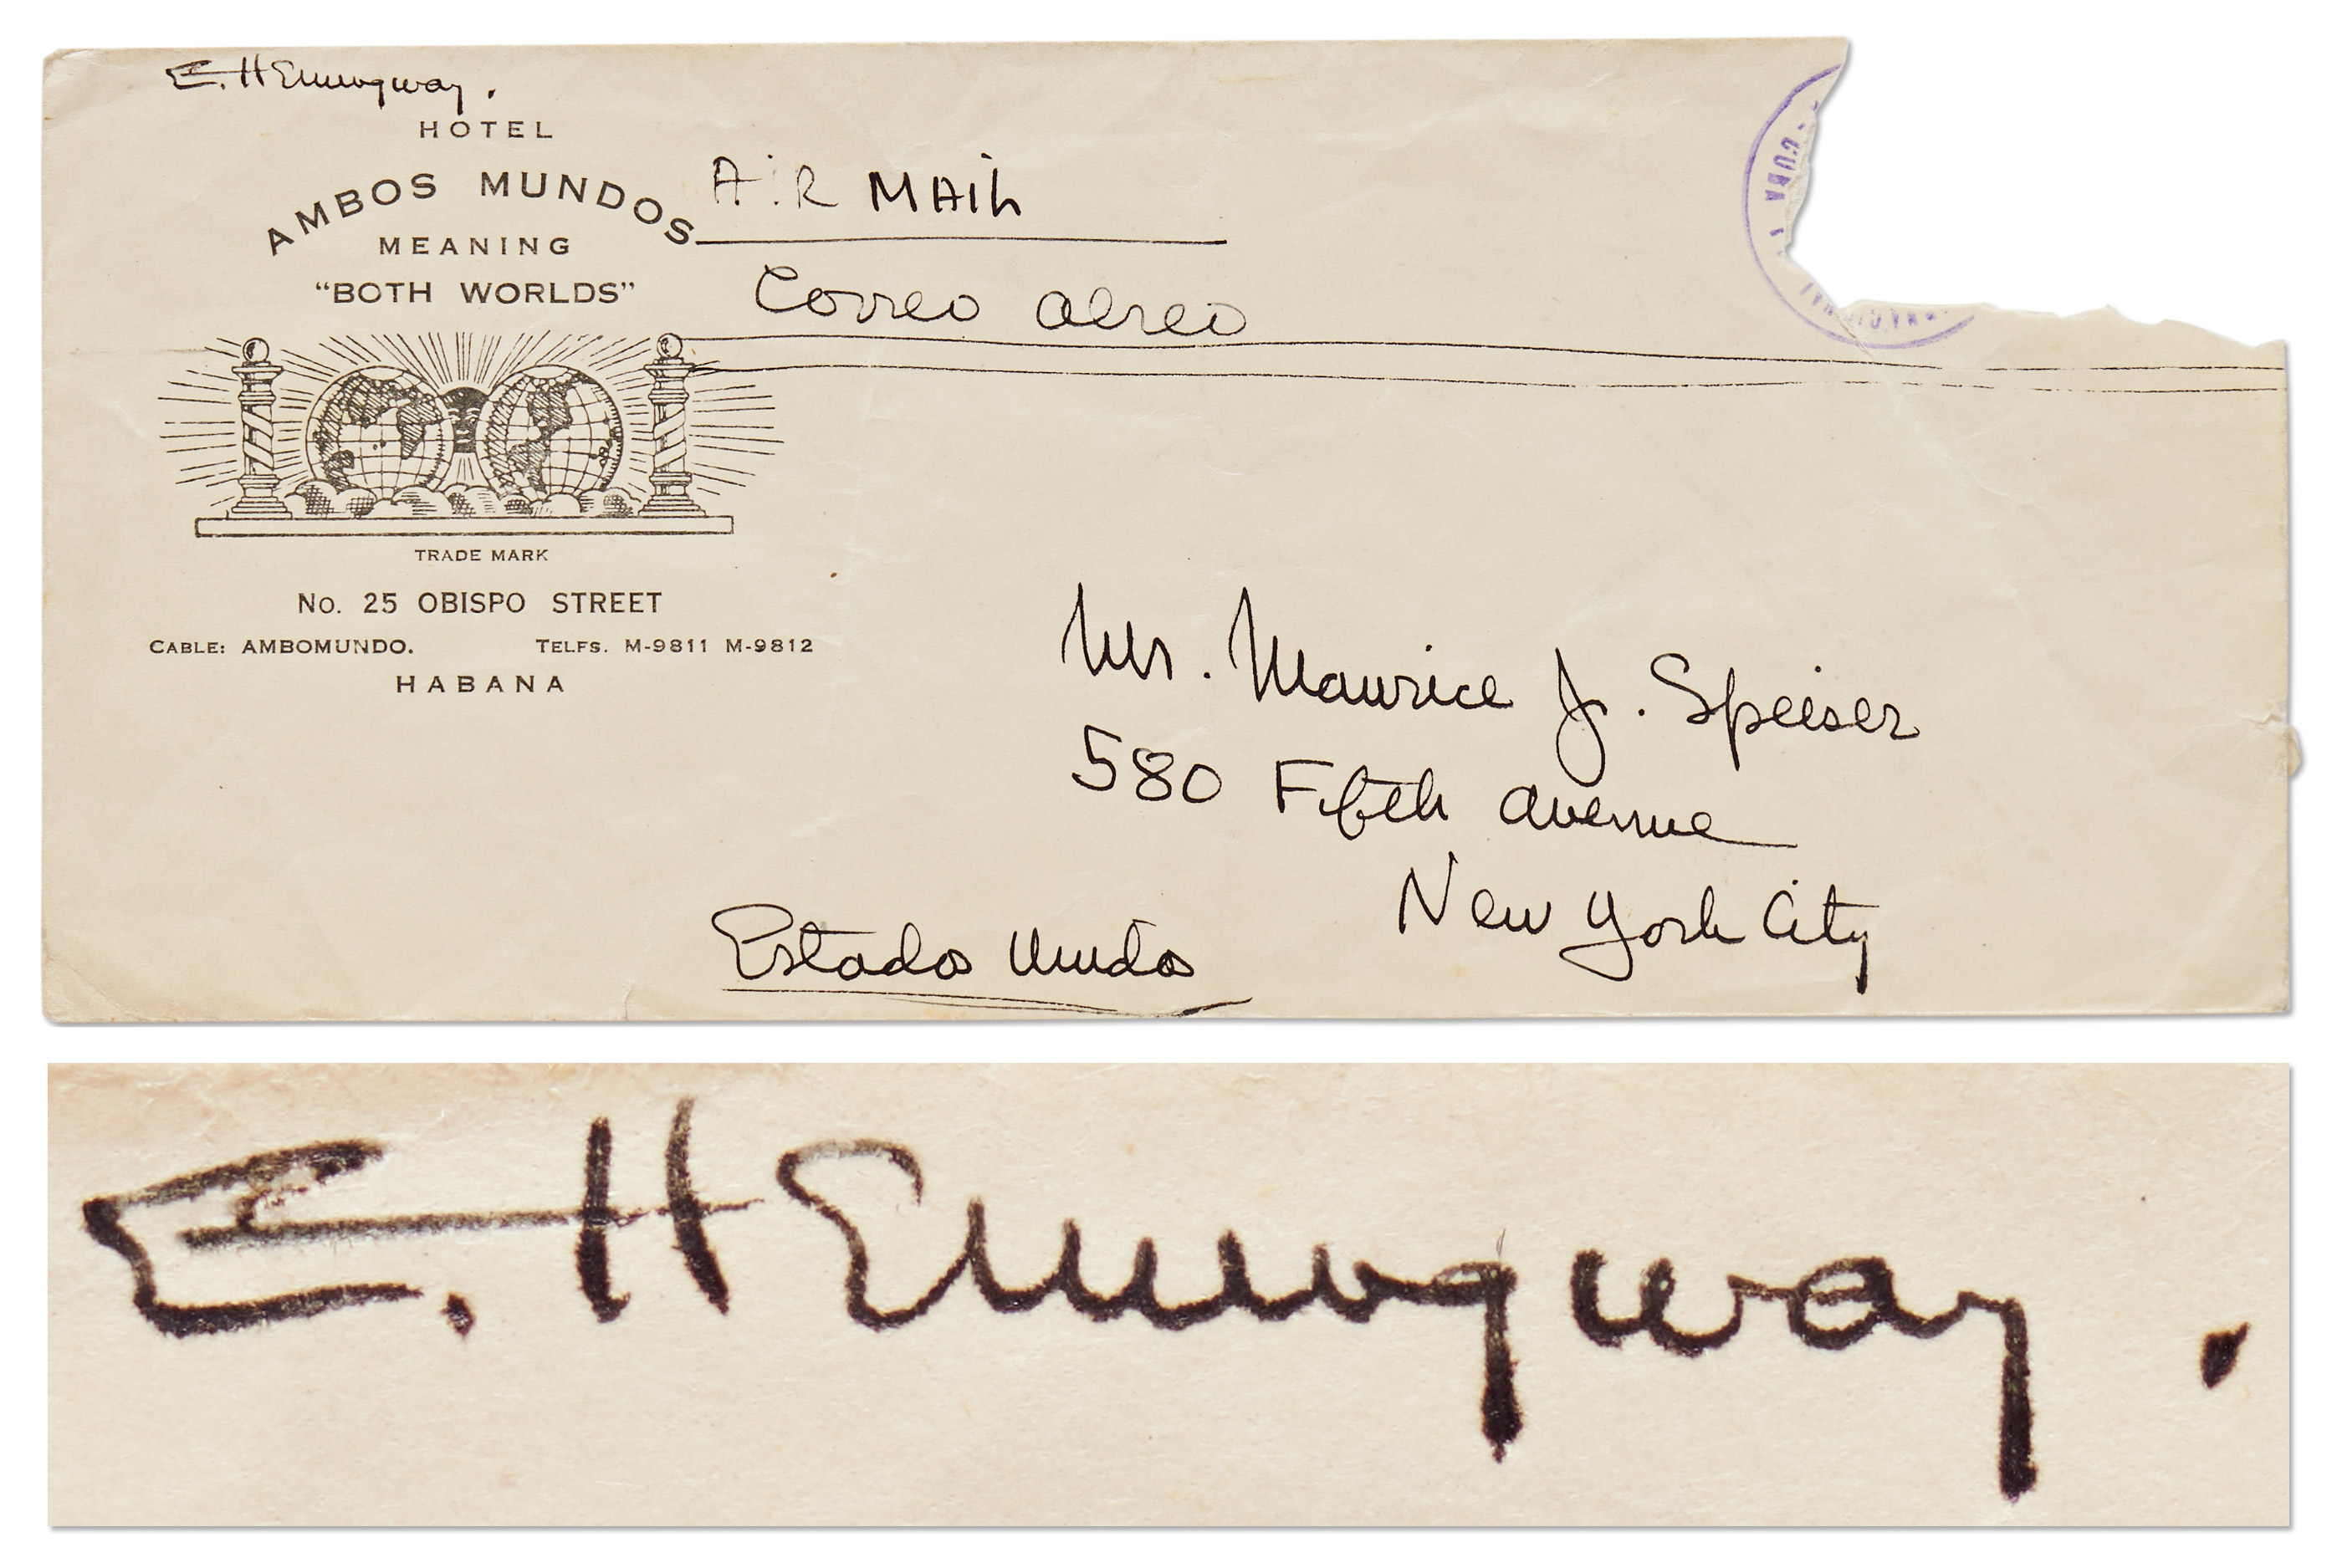 E. HEmingway.
HOTEL
AMBOS MUNDOS
MEANING
“BOTH WORLDS”
AiR MAiL
Correo aereo
CUBA
TRADE MARK
No. 25 OBISPO STREET
CABLE: AMBOMUNDO. TELFS. M-9811 M-9812
HABANA
Mr. Maurice J. Speiser
580 Fifth avenue
New York City
Estados Unidos
E. HEmingway.